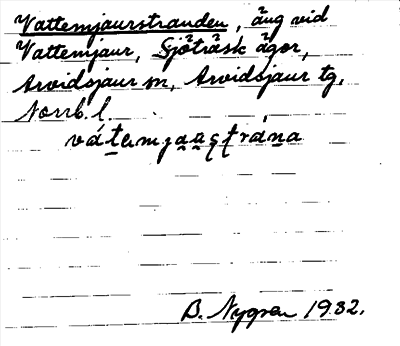 Vattemjaurstranden, äng vid
Vattemjaur, Sjöträsk ägor,
Arvidsjaur sn, Arvidsjaur tg,
Norrb. l.
B. Nygren 1932.